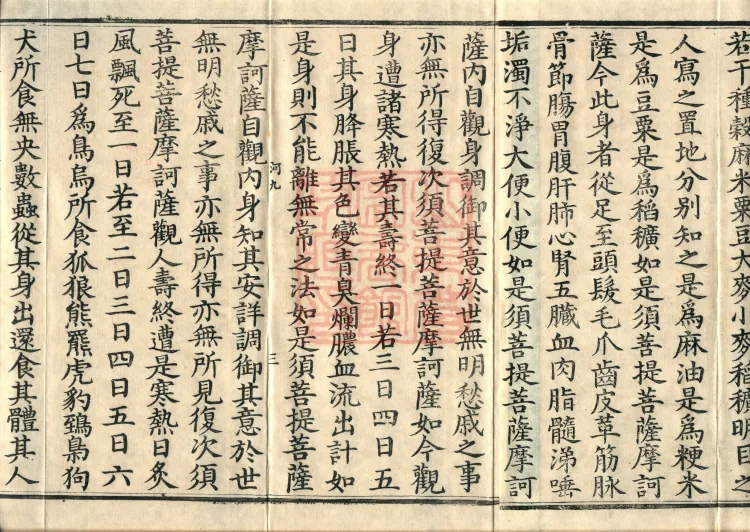 若干種穀麻米粟豆大麥小麥稻穬明目之
人寫之置地分別知之是為麻油是為粳米
是為豆粟是為稻穬如是須菩提菩薩摩訶
薩今此身者從足至頭髮毛爪齒皮革筋脉
骨節膓胃腹肝肺心腎五臟血肉脂髓涕唾
垢濁不淨大便小便如是須菩提菩薩摩訶
薩內自觀身調御其意於世無明愁戚之事
亦無所得復次須菩提菩薩摩訶薩如今觀
身遭諸寒熱若其壽終一日若三日四日五
日其身胮脹其色變青臭爛膿血流出計如
是身則不能離無常之法如是須菩提菩薩
河九 三
摩訶薩自觀內身知其安詳調御其意於世
無明愁戚之事亦無所得亦無所見復次須
菩提菩薩摩訶薩觀人壽終遭是寒熱日炙
風飄死至一日若至二日三日四日五日六
日七日為鳥烏所食狐狼熊羆虎豹鵄梟狗
犬所食無央數蟲從其身出還食其體其人